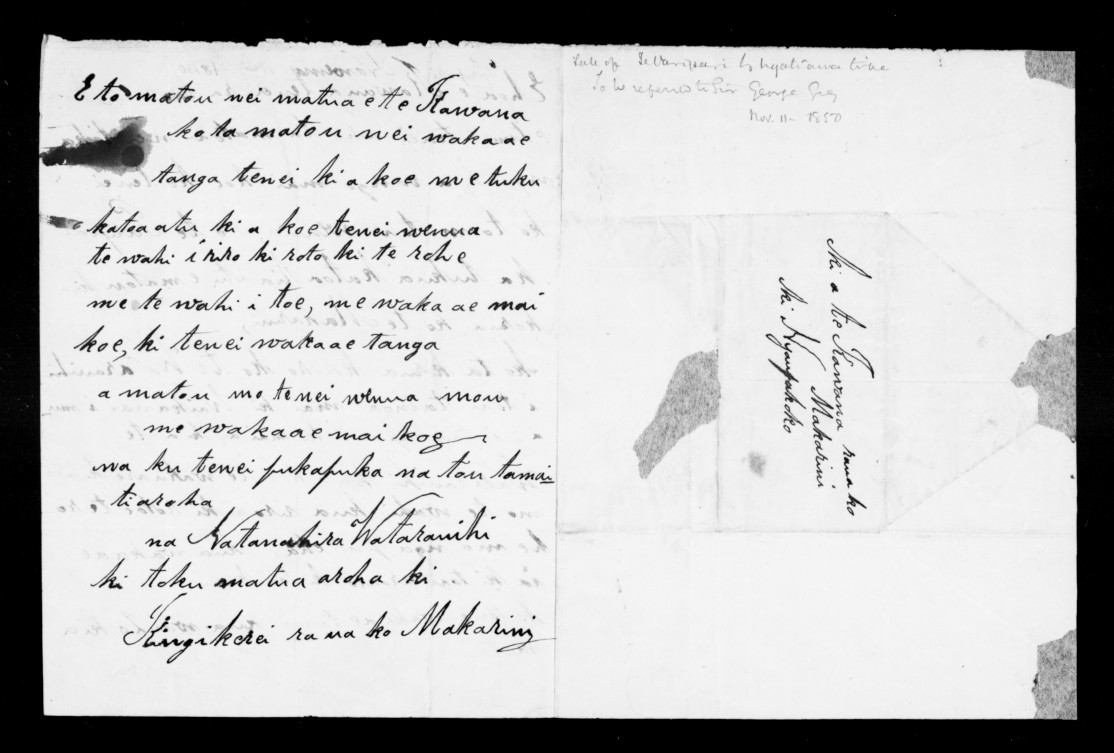 E to matou nei matua e te Kawana
ko ta matou nei wakaae
tanga tenei ki a koe me tuku
katoa atu ki a koe tenei wenua
te wahi i riro ki roto ki te rohe
me te wahi i toe, me waka ae mai
koe, ki tenei wakaae tanga
a matou mo tenei wenua mou
me wakaae mai koe
na ku tenei pukapuka na tou tamai
tiaroha
na Watarauihi
ki toku matua aroha ki
Kingikerei ra ua ko Makarini
Sale of by Ngatiawa tribe
To be referred to Sir George Grey
Nov. 11- 1850
Ki a te Kawana raua ko
Makarini
ki